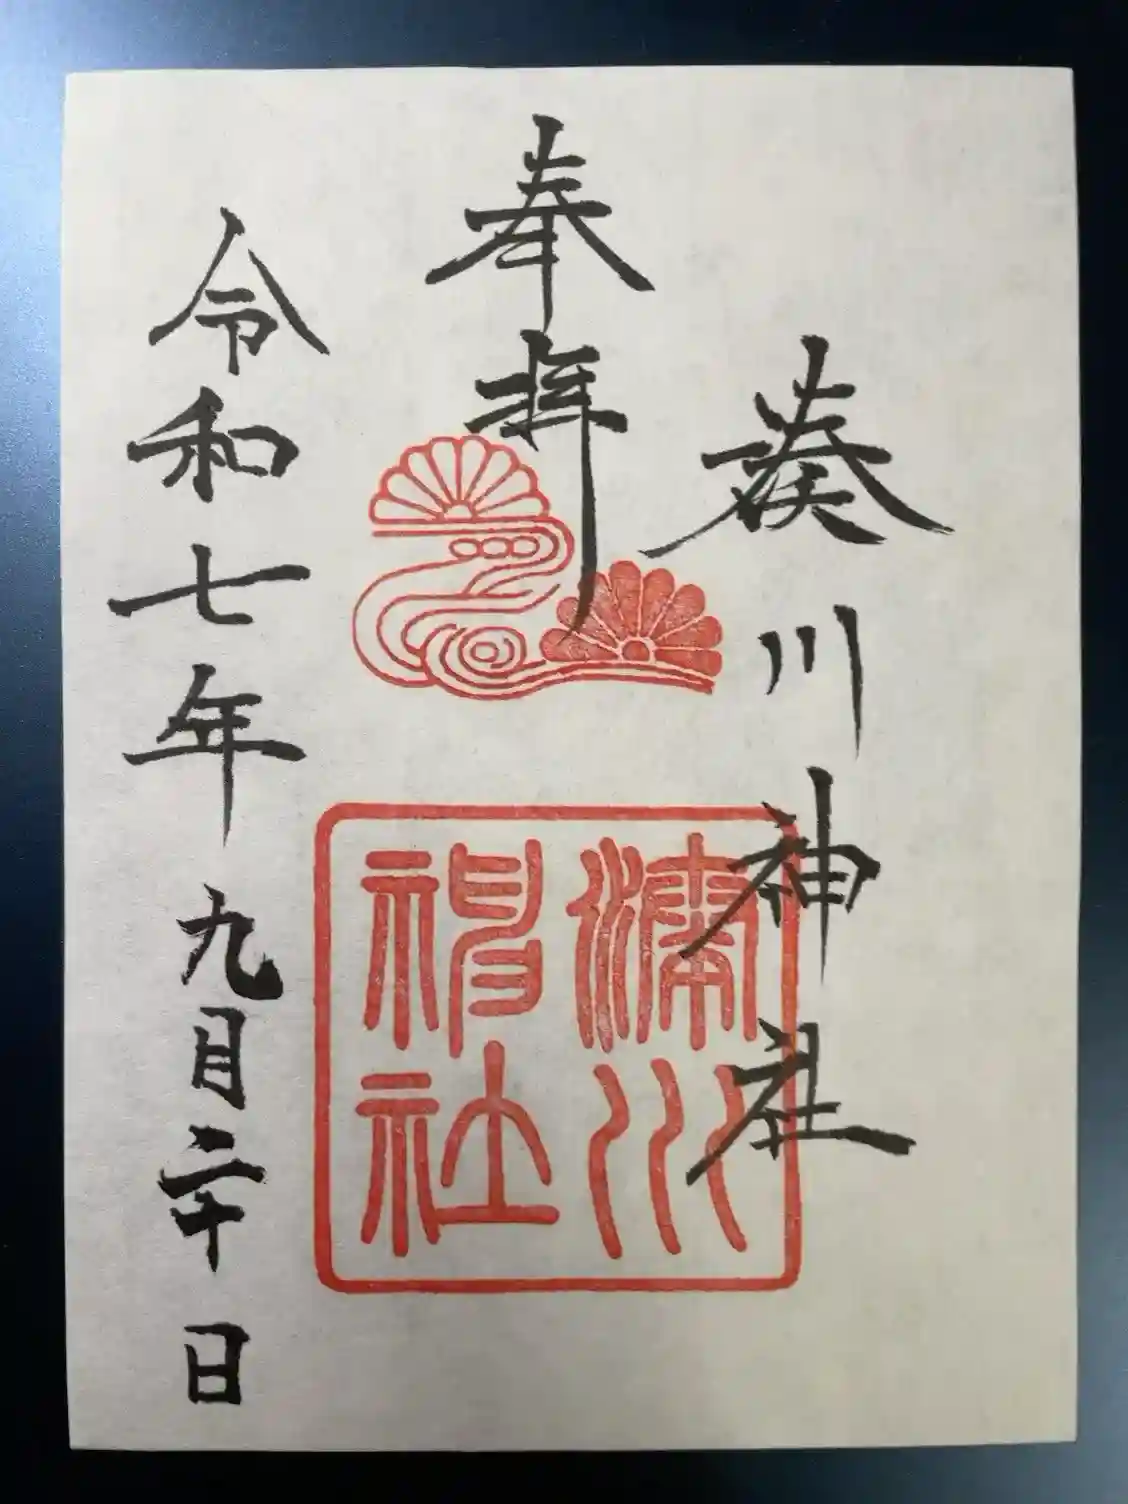 湊川神社
奉拝
令和七年九月二十日
湊川
神社